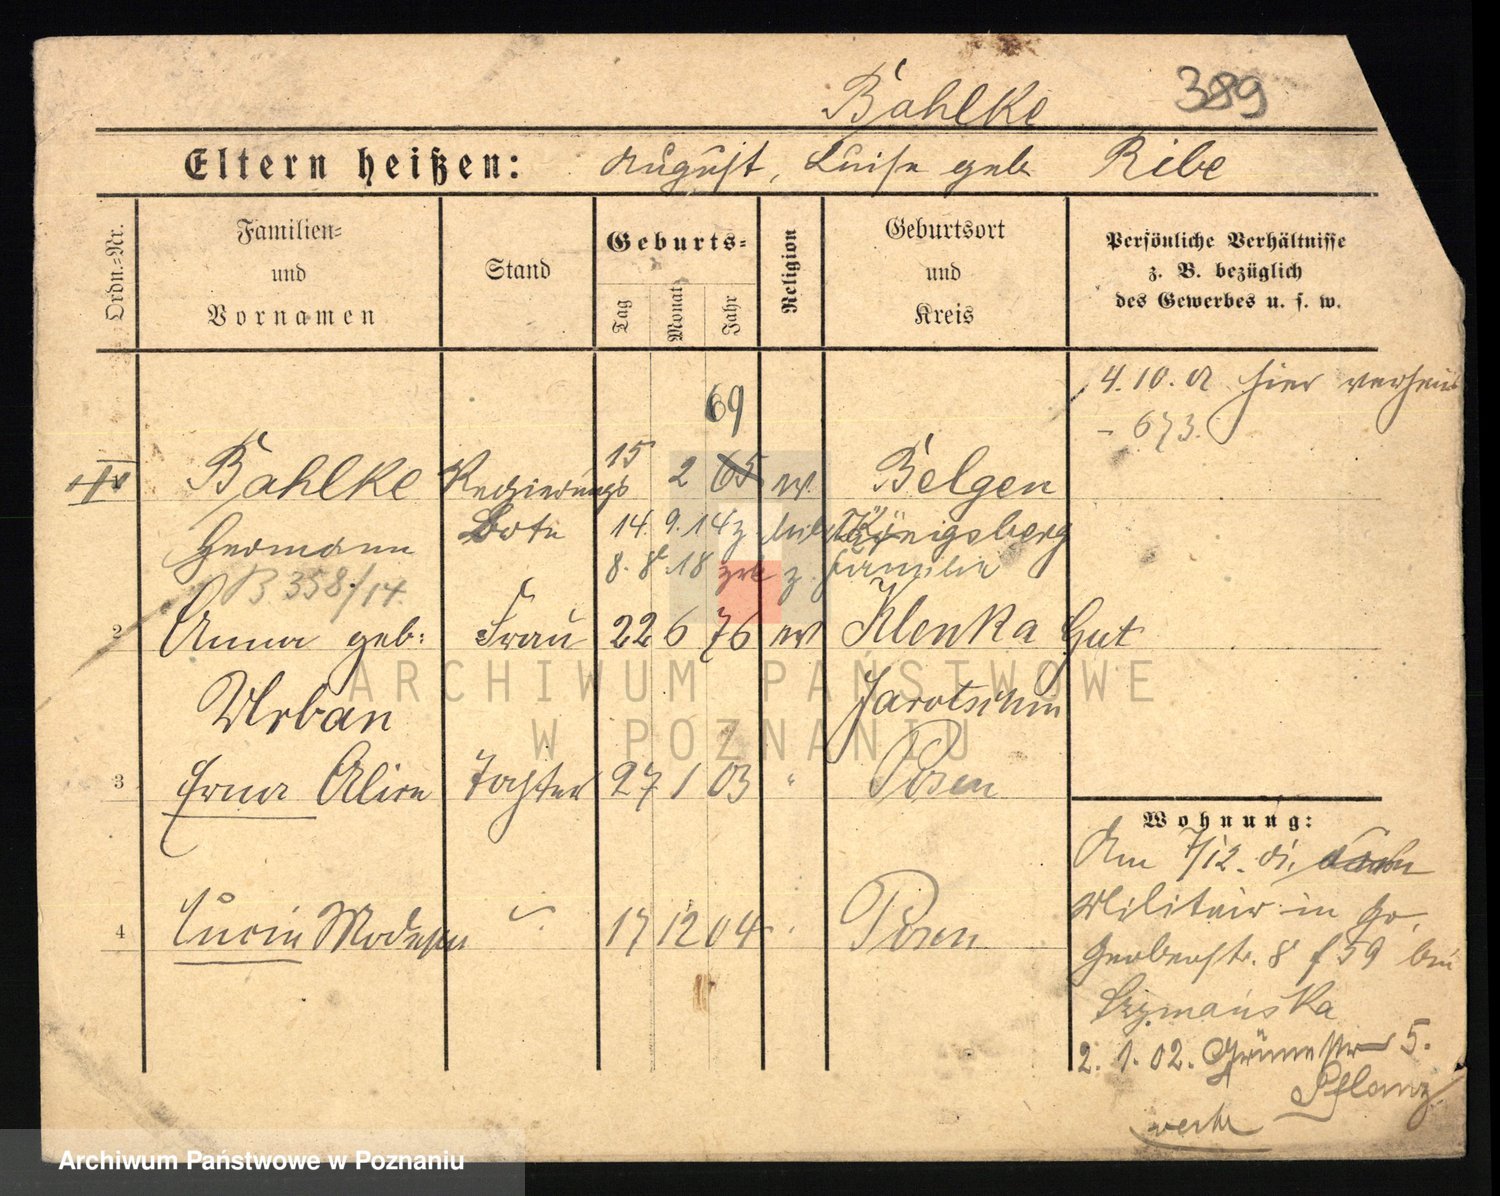 Bahlke 389
Eltern heißen: August, Luise geb. Ribe
Ordn.-Nr.
Familien-
und
Vornamen
Stand
Geburts-
Tag
Monat
Jahr
Religion
Geburtsort
und
Kreis
Persönliche Verhältnisse
z. B. bezüglich
des Gewerbes u. s. w.
4.10.01 hier verheir
- 673.
69
Bahlke Regierungs 15 2 65 ev. Belgen
Hermann Bote 14. 9. 14 z. Königsberg
8. 8. 18 zrk z. Familie
B 358/14.
2 Anna geb: Frau 22 6 76 ev Klenka Gut
Urban Jarotschin
3 Erna Alice Tochter 27 1 03 " Posen
4 Lucie 17 12 04 " Posen
Wohnung:
Am 7/12. 01.
Militair in Go.
Gerberstr. 8 f 59 bei
Szymanska
2. 1. 02. Grünestr 5.
Pflanz
ARCHIWUM PAŃSTWOWE
W POZNANIU
Archiwum Państwowe w Poznaniu